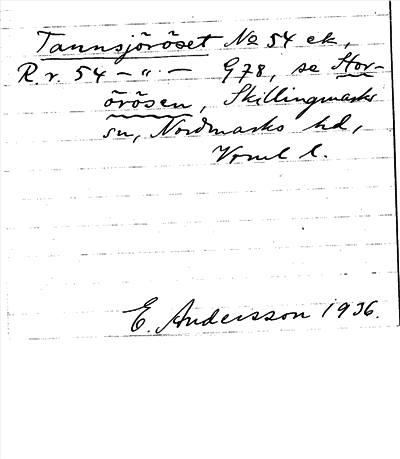 Tannsjöröset No 54 ek,
R.r. 54 – " – G78, se Stor-
örösen, Skillingmarks
sn, Nordmarks hd,
Vrml l.
E. Andersson 1936.